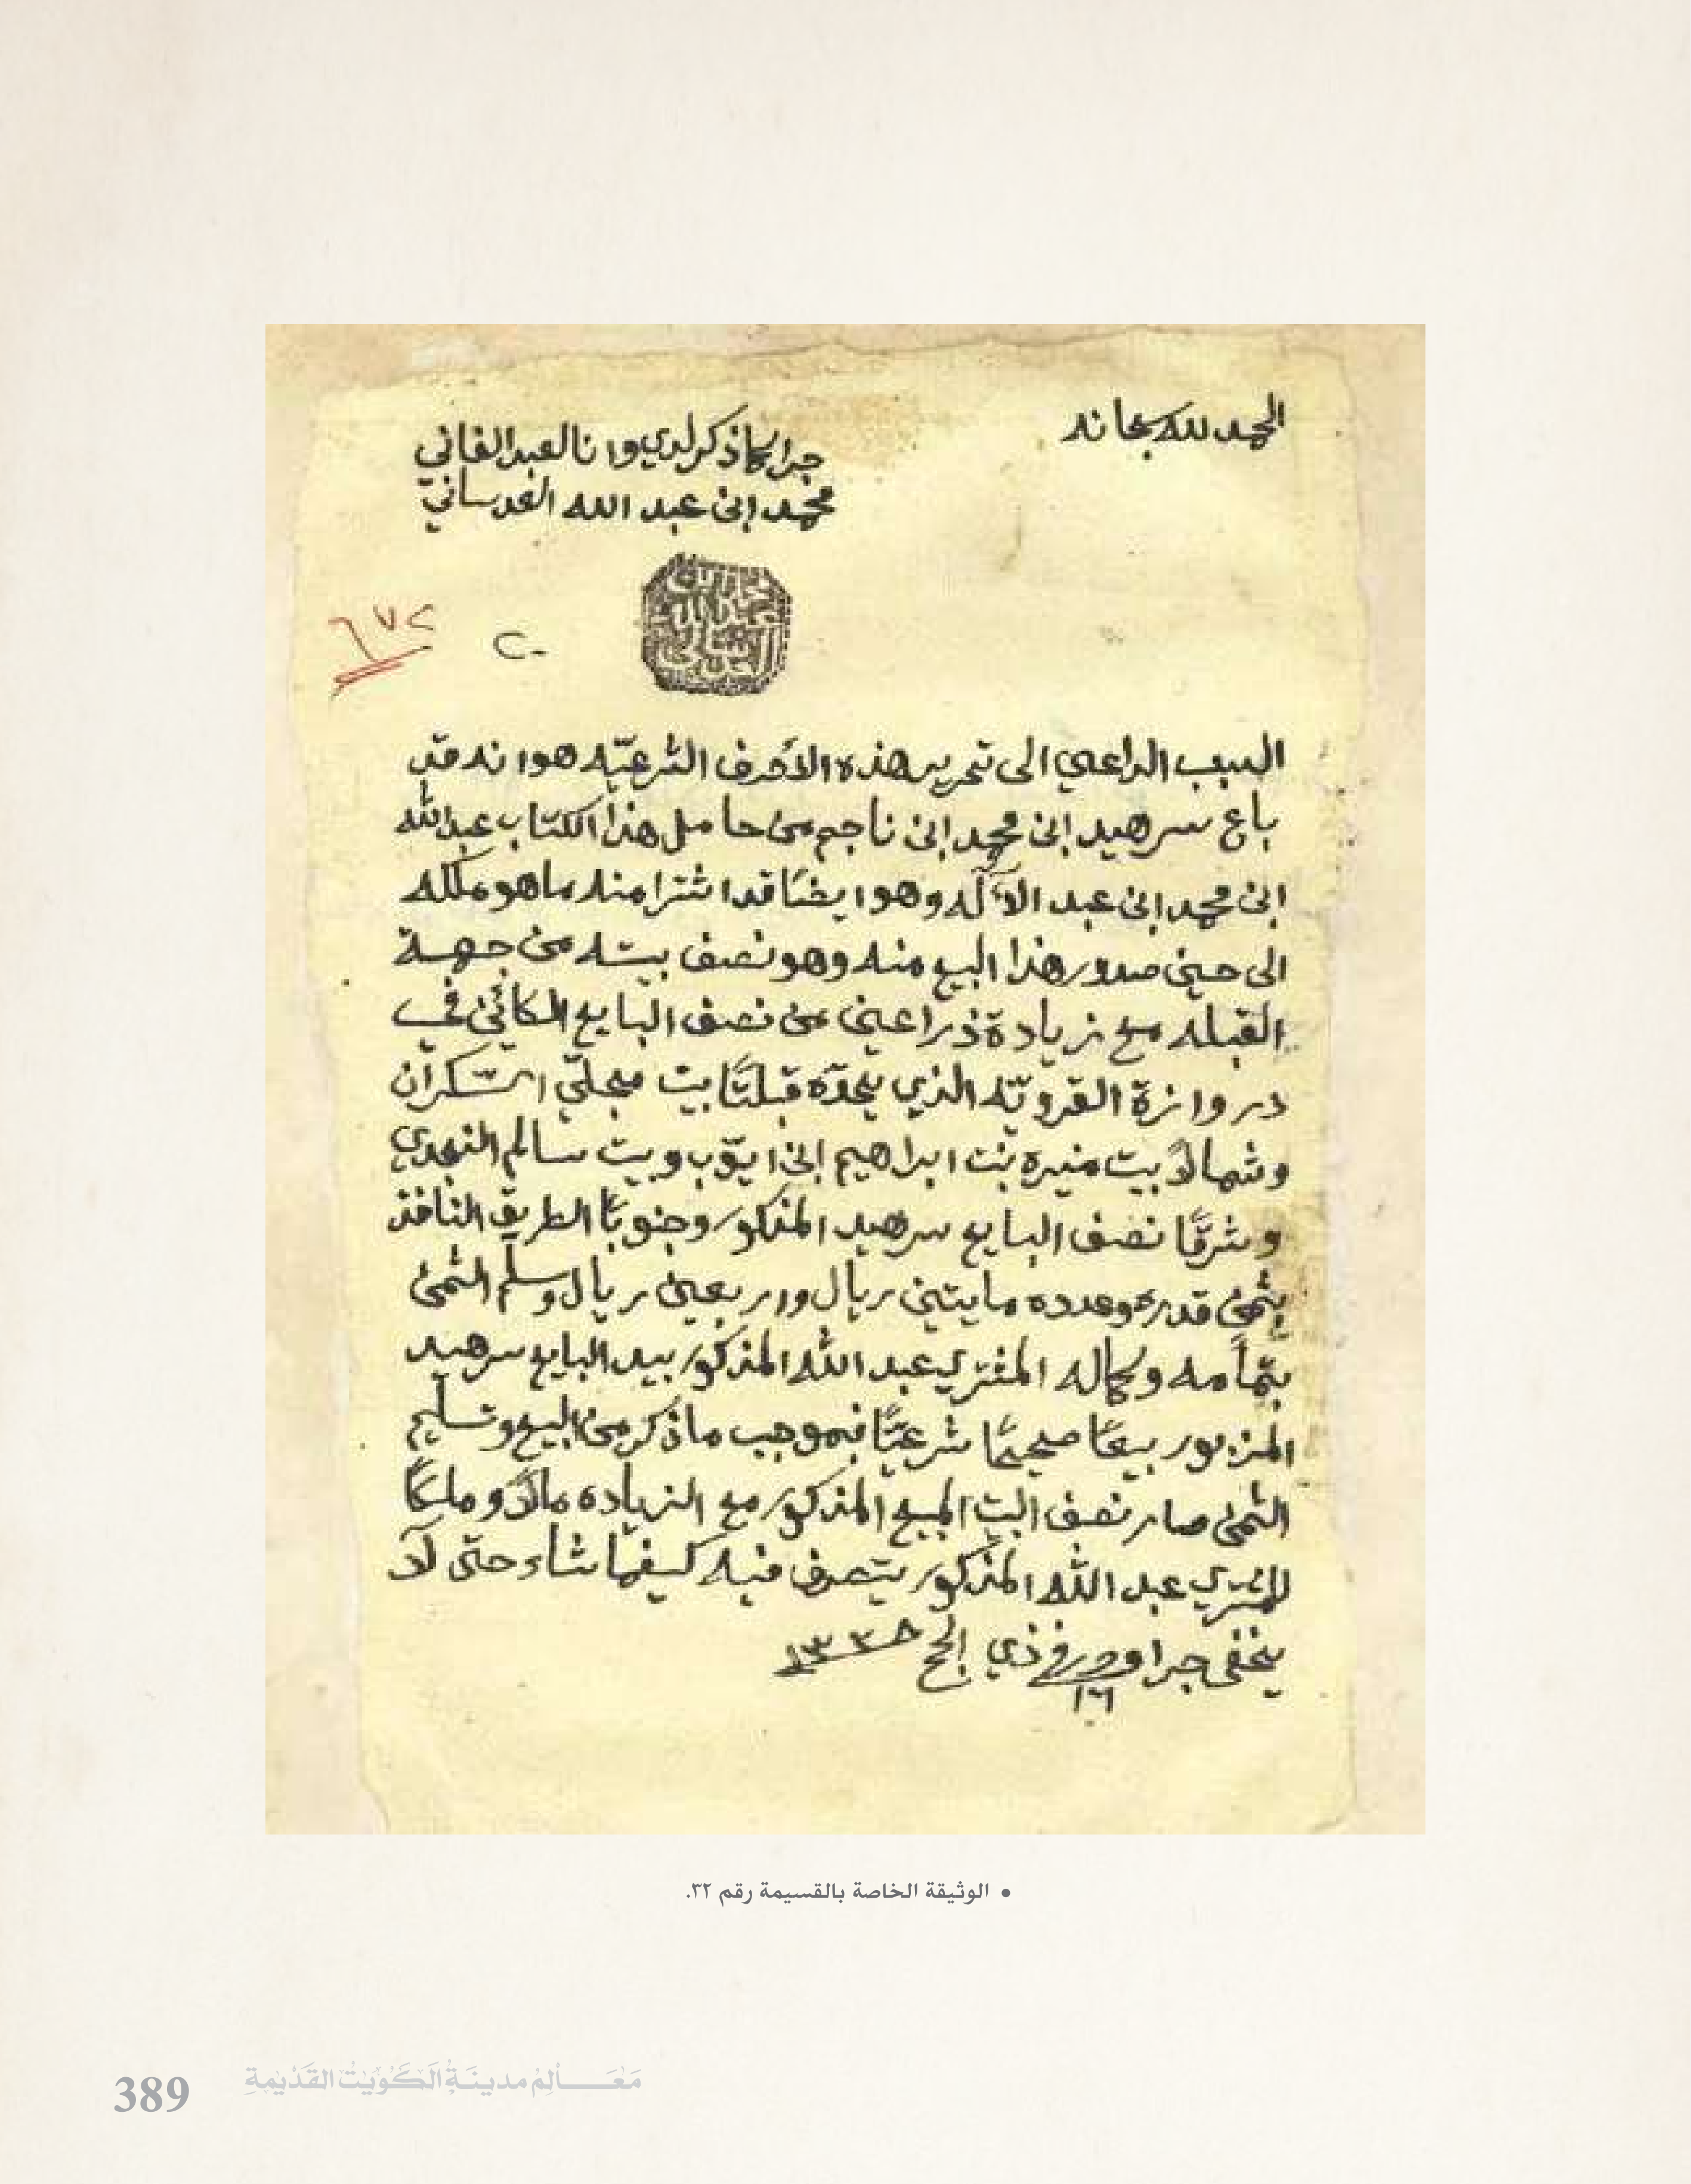 الحمد لله سبحانه
جرا كماذكر لدي وانا العبد الفاني
محمد ابن عبد الله العدساني
٦٧٢
٢٠
السبب الداعي الى تحرير هذه الاحرف الشرعيّه هو انه قد
باع سرهيد ابن محمد ابن ناجم من حامل هذا الكتاب عبدالله
ابن محمد ابن عبد الآله وهو ايضًا قد اشترا منه ما هو ملكه
الى حين صدور هذا البيع منه وهو نصف بيته من جهة
القبله مع زيادة ذراعين من نصف البايع الكائن في
دروازة القرويّه الذي يحدّه قبلتًا بيت مجلّي
وشمالًا بيت منيره بنت ابراهيم ابن ايوّب وبيت سالم النجدي
وشرقًا نصف البايع سرهيد المذكور وجنوبًا الطريق النافذ
بثمن قدره وعدده مايتين ريال واربعين ريال وسلّم الثمن
بتمامه وكماله المشتري عبد الله المذكور بيد البايع سرهيد
المزبور بيعًا صحيحًا شرعيًّا فبموجب ماذكر من البيع وتسليم
الثمن صار نصف البيت المبيع المذكور مع الزياده مالًا وملكًا
للمشتري عبد الله المذكور يتصرف فيه كيفما شاء حتى لا
يخفى جرا وحرر في ١٦ ذي الحج ١٣٣٨
• الوثيقة الخاصة بالقسيمة رقم ٣٢.
مَعَـــالِم مدينَةِ الكُوَيْتِ القَدْيمَةِ
389